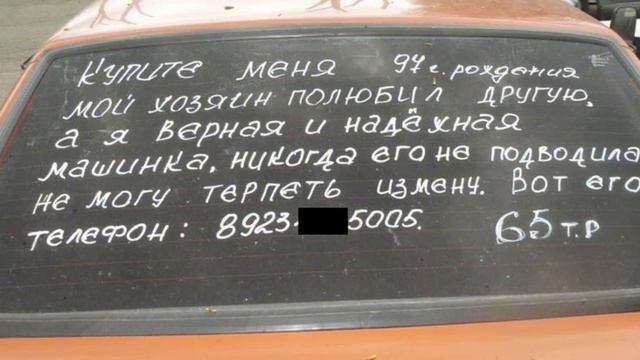 Купите меня 97 г. рождения
мой хозяин полюбил другую,
а я верная и надёжная
машинка, никогда его не подводила
не могу терпеть измену. Вот его
телефон: 8923- 5005. 65 т.р